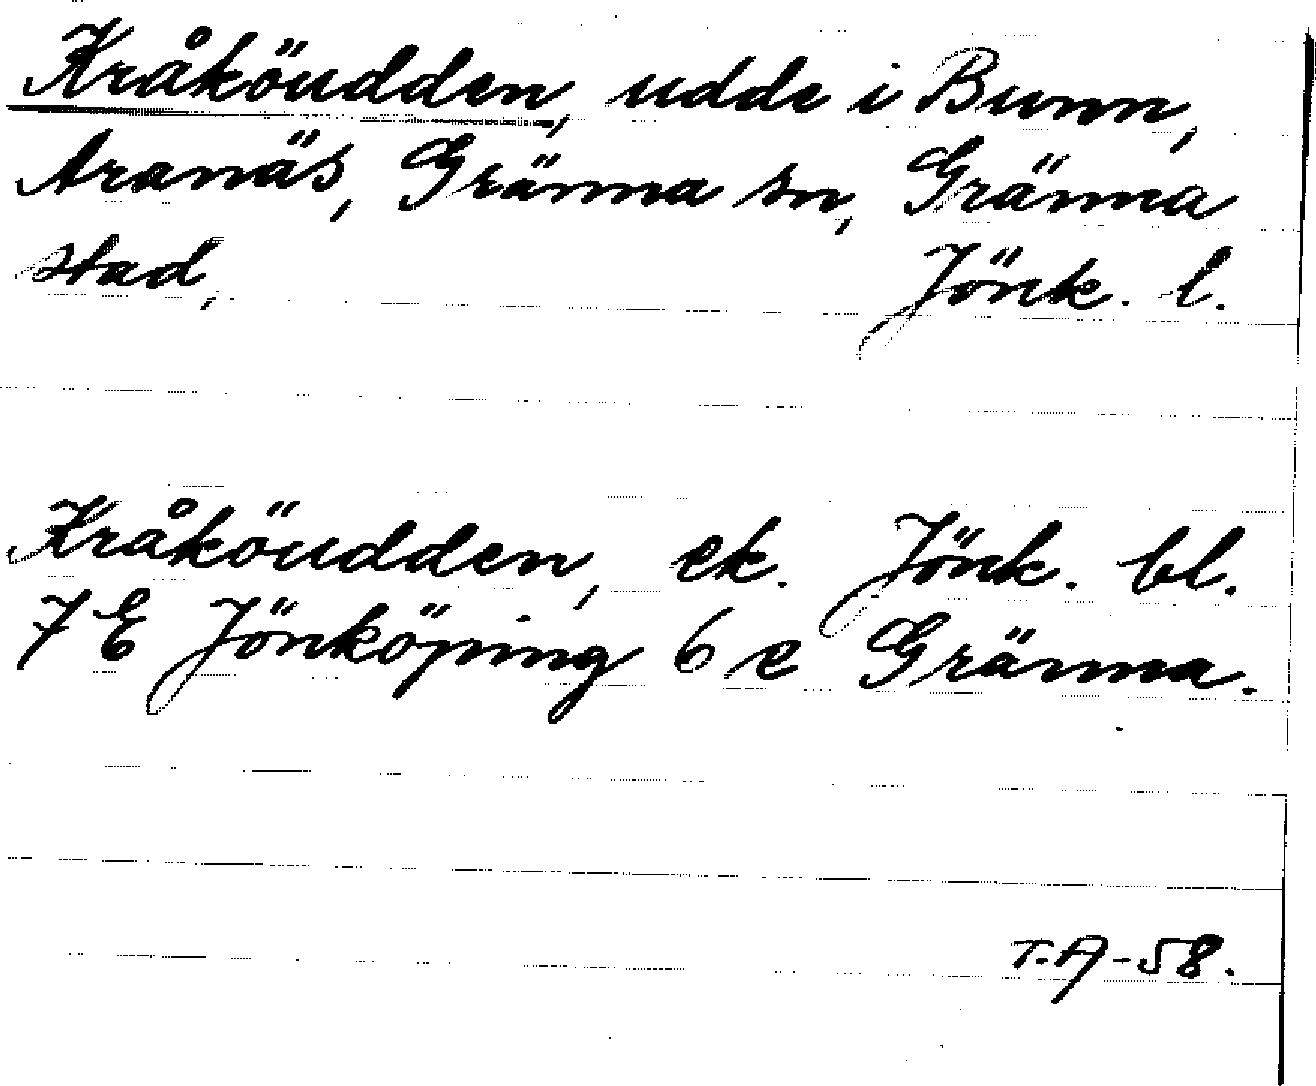 Kråköudden, udde i Bunn,
Aranäs, Gränna sn, Gränna
stad, Jönk. l.
Kråköudden, ek. Jönk. bl.
7 E Jönköping 6 e Gränna.
T.A-58.